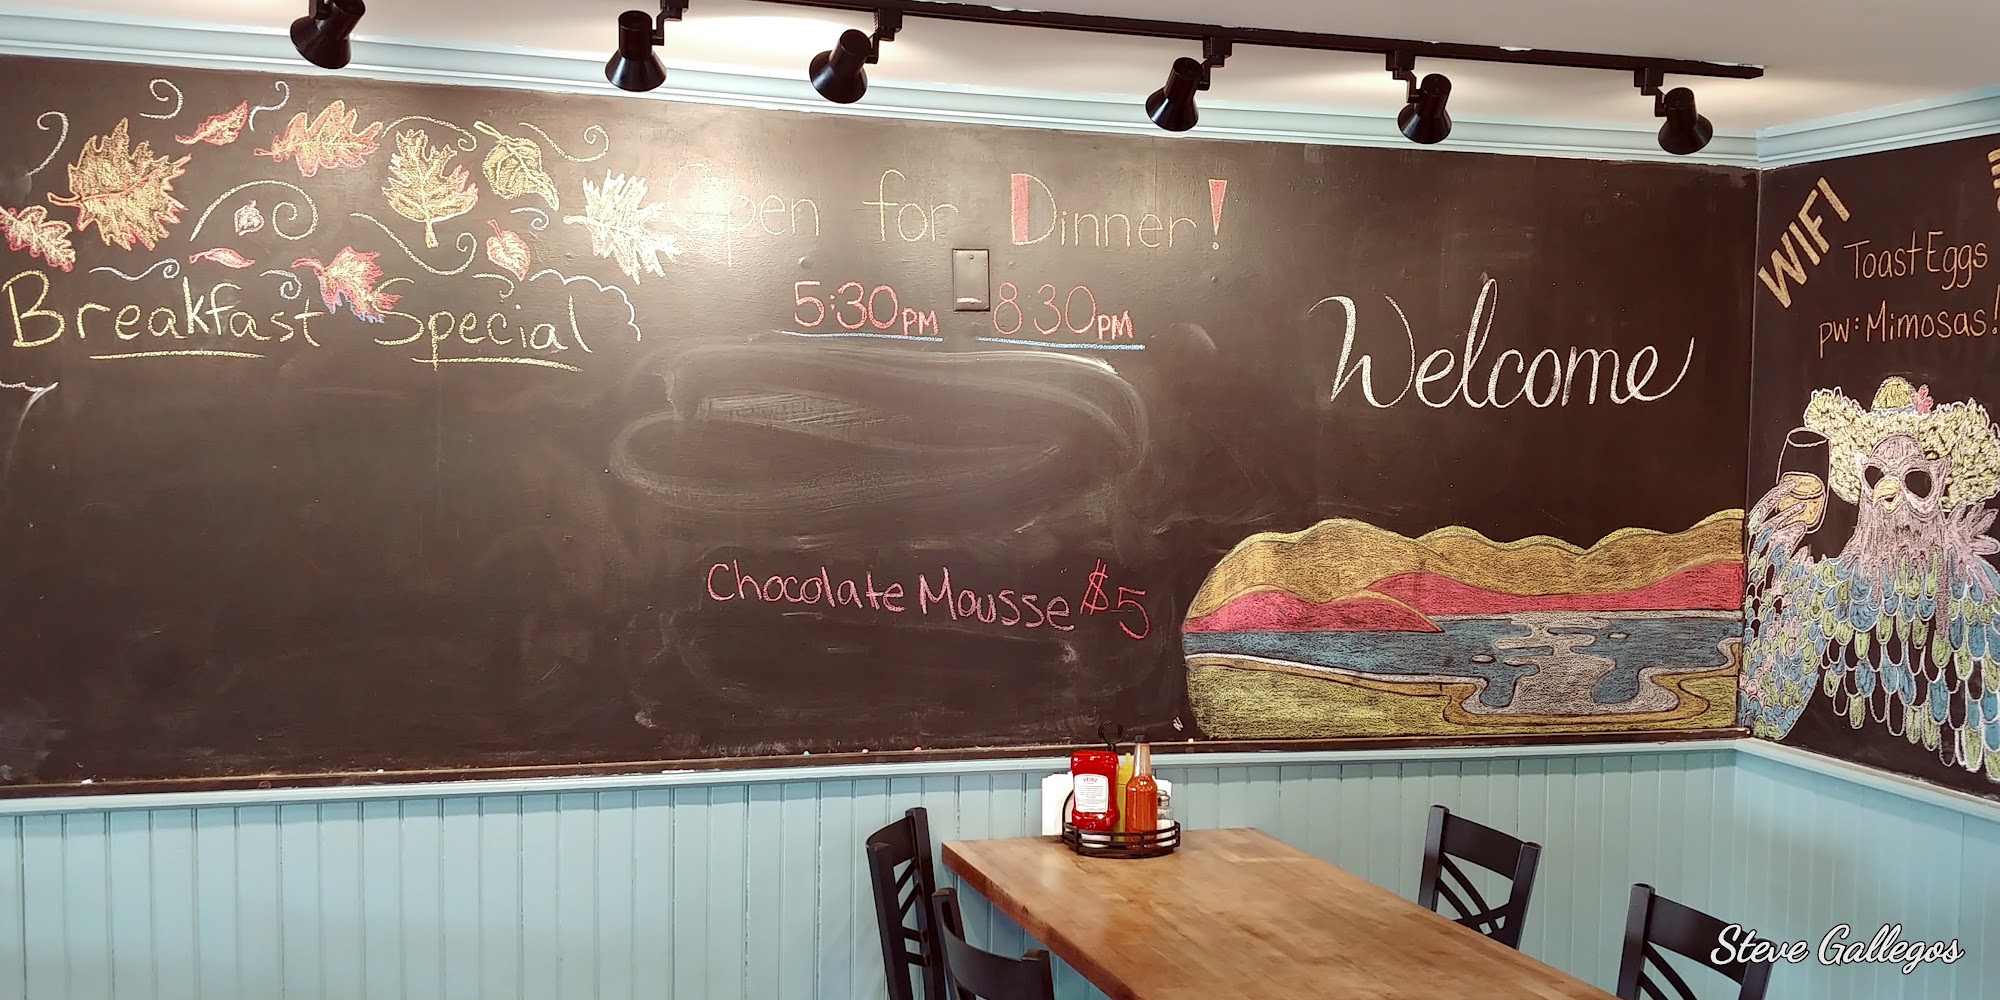 Breakfast Special
Open for Dinner!
5:30PM 8:30PM
Chocolate Mousse $5
Welcome
WIFI
Toast Eggs
pw: Mimosas!
HEINZ
Steve Gallegos